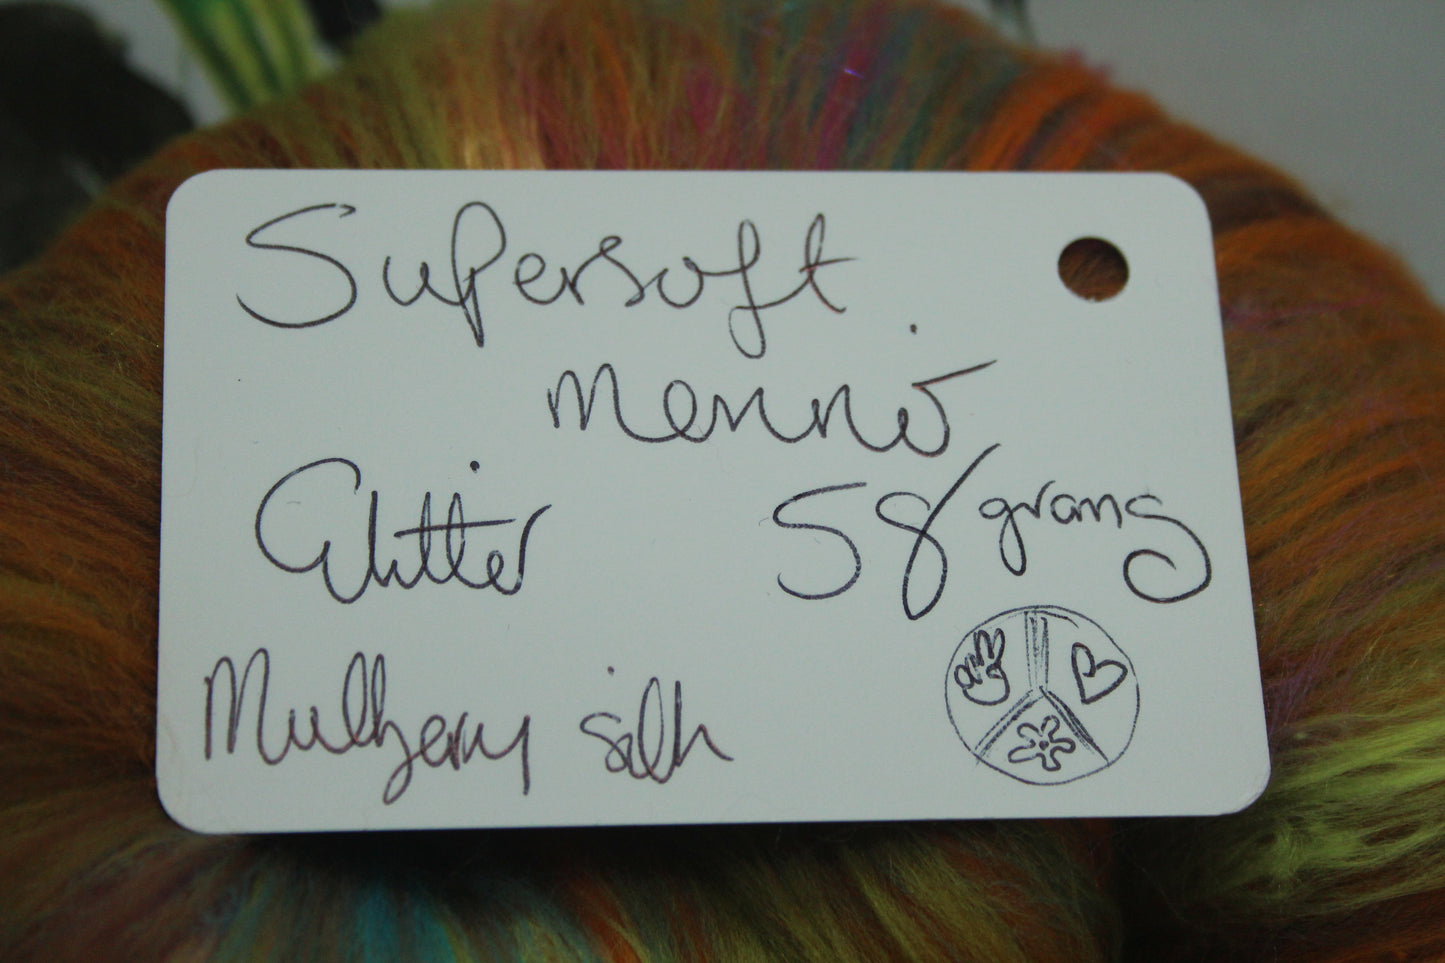 Supersoft
merino
Glitter 58 grams
Mulberry silk